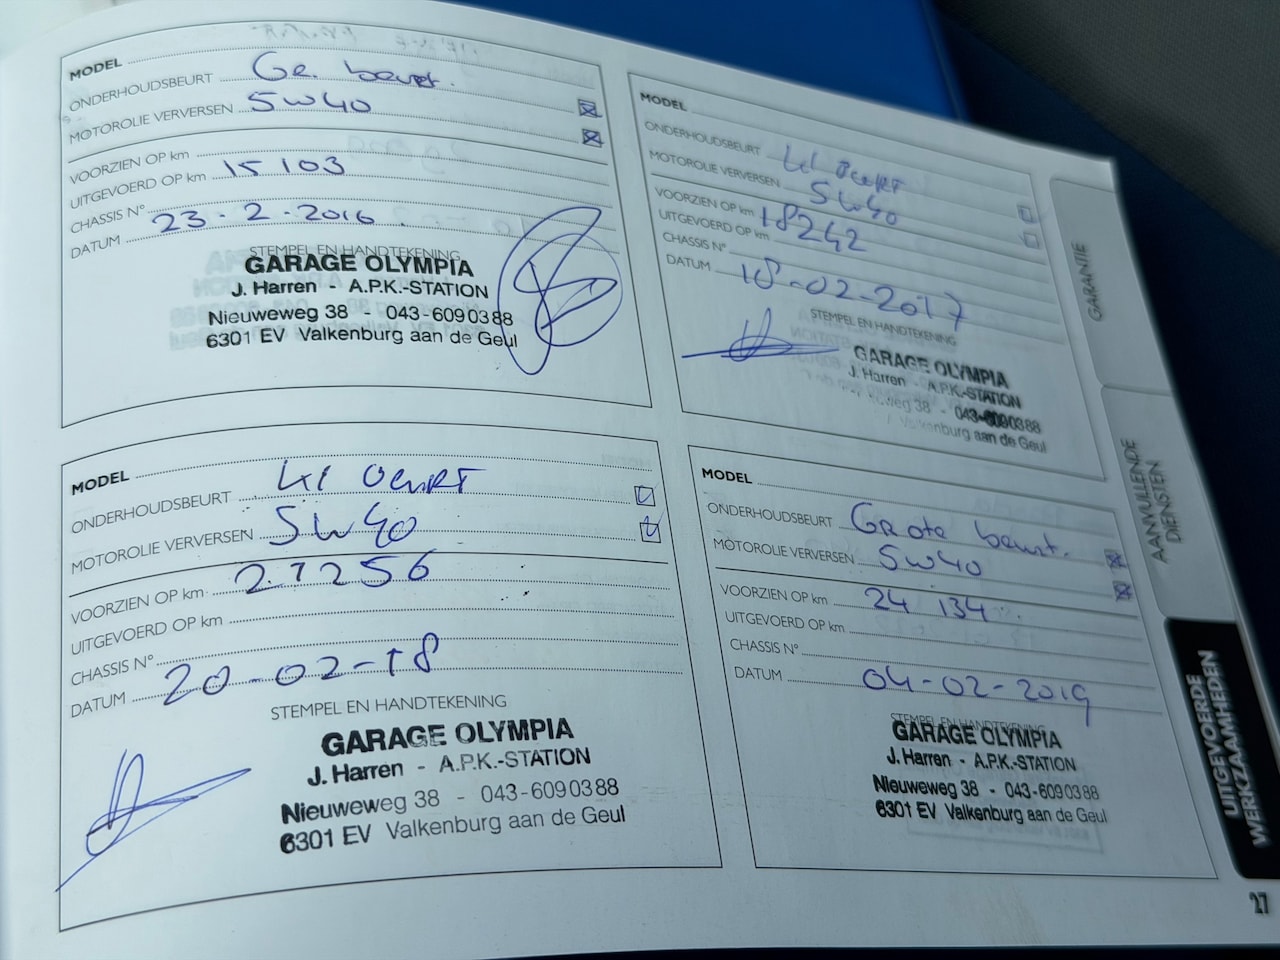 MODEL
ONDERHOUDSBEURT Gr. beurt.
MOTOROLIE VERVERSEN 5W40
VOORZIEN OP km
UITGEVOERD OP km 15103
CHASSIS N°
DATUM 23-2-2016
STEMPEL EN HANDTEKENING
GARAGE OLYMPIA
J. Harren - A.P.K.-STATION
Nieuweweg 38 - 043-6090388
6301 EV Valkenburg aan de Geul
MODEL
ONDERHOUDSBEURT Kl Beurt
MOTOROLIE VERVERSEN 5W40
VOORZIEN OP km
UITGEVOERD OP km 18242
CHASSIS N°
DATUM 18-02-2017
STEMPEL EN HANDTEKENING
GARAGE OLYMPIA
J. Harren - A.P.K.-STATION
Nieuweweg 38 - 043-6090388
Valkenburg aan de Geul
MODEL
ONDERHOUDSBEURT Kl Beurt
MOTOROLIE VERVERSEN 5W40
VOORZIEN OP km 21256
UITGEVOERD OP km
CHASSIS N°
DATUM 20-02-18
STEMPEL EN HANDTEKENING
GARAGE OLYMPIA
J. Harren - A.P.K.-STATION
Nieuweweg 38 - 043-6090388
6301 EV Valkenburg aan de Geul
MODEL
ONDERHOUDSBEURT Grote beurt.
MOTOROLIE VERVERSEN 5W40
VOORZIEN OP km 24134
UITGEVOERD OP km
CHASSIS N°
DATUM 04-02-2019
STEMPEL EN HANDTEKENING
GARAGE OLYMPIA
J. Harren - A.P.K.-STATION
Nieuweweg 38 - 043-6090388
6301 EV Valkenburg aan de Geul
GARANTIE
AANVULLENDE
DIENSTEN
UITGEVOERDE
WERKZAAMHEDEN
27